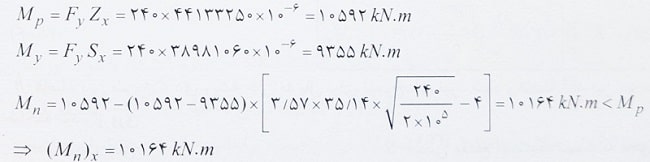 M_p = F_y Z_x = ۲۴۰×۴۴۱۳۳۲۵۰×۱۰^{-۶} = ۱۰۵۹۲ kN.m
M_y = F_y S_x = ۲۴۰×۳۸۹۸۱۰۶۰×۱۰^{-۶} = ۹۳۵۵ kN.m
M_n = ۱۰۵۹۲-(۱۰۵۹۲-۹۳۵۵)×[۳/۵۷×۳۵/۱۴×√(۲۴۰/(۲×۱۰^۵))-۴] = ۱۰۱۶۴ kN.m < M_p
⇒ (M_n)_x = ۱۰۱۶۴ kN.m